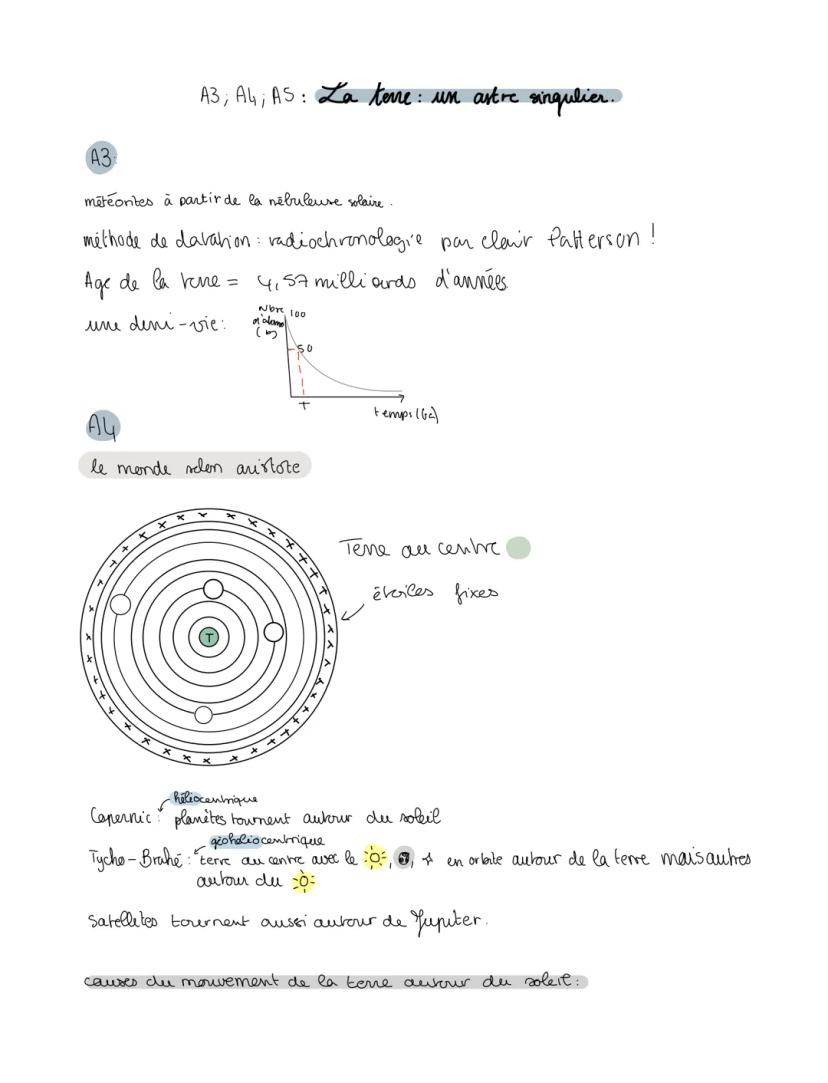 A3; A4; A5: La terre: un astre singulier.
A3:
météorites à partir de la nébuleuse solaire.
méthode de datation: radiochronologie par clair Patterson!
Age de la terre = 4,57 milliards d'années
une demi-vie:
Nbre
d'atomes
100
50
T
temps (Ga)
A4
le monde selon aristote
Terre au centre
étoiles fixes
T
héliocentrique
Copernic: planètes tournent autour du soleil
géohéliocentrique
Tycho-Brahé: terre au centre avec le , , en orbite autour de la terre mais autres
autour du
Satellites tournent aussi autour de Jupiter.
causes du mouvement de la terre autour du soleil: